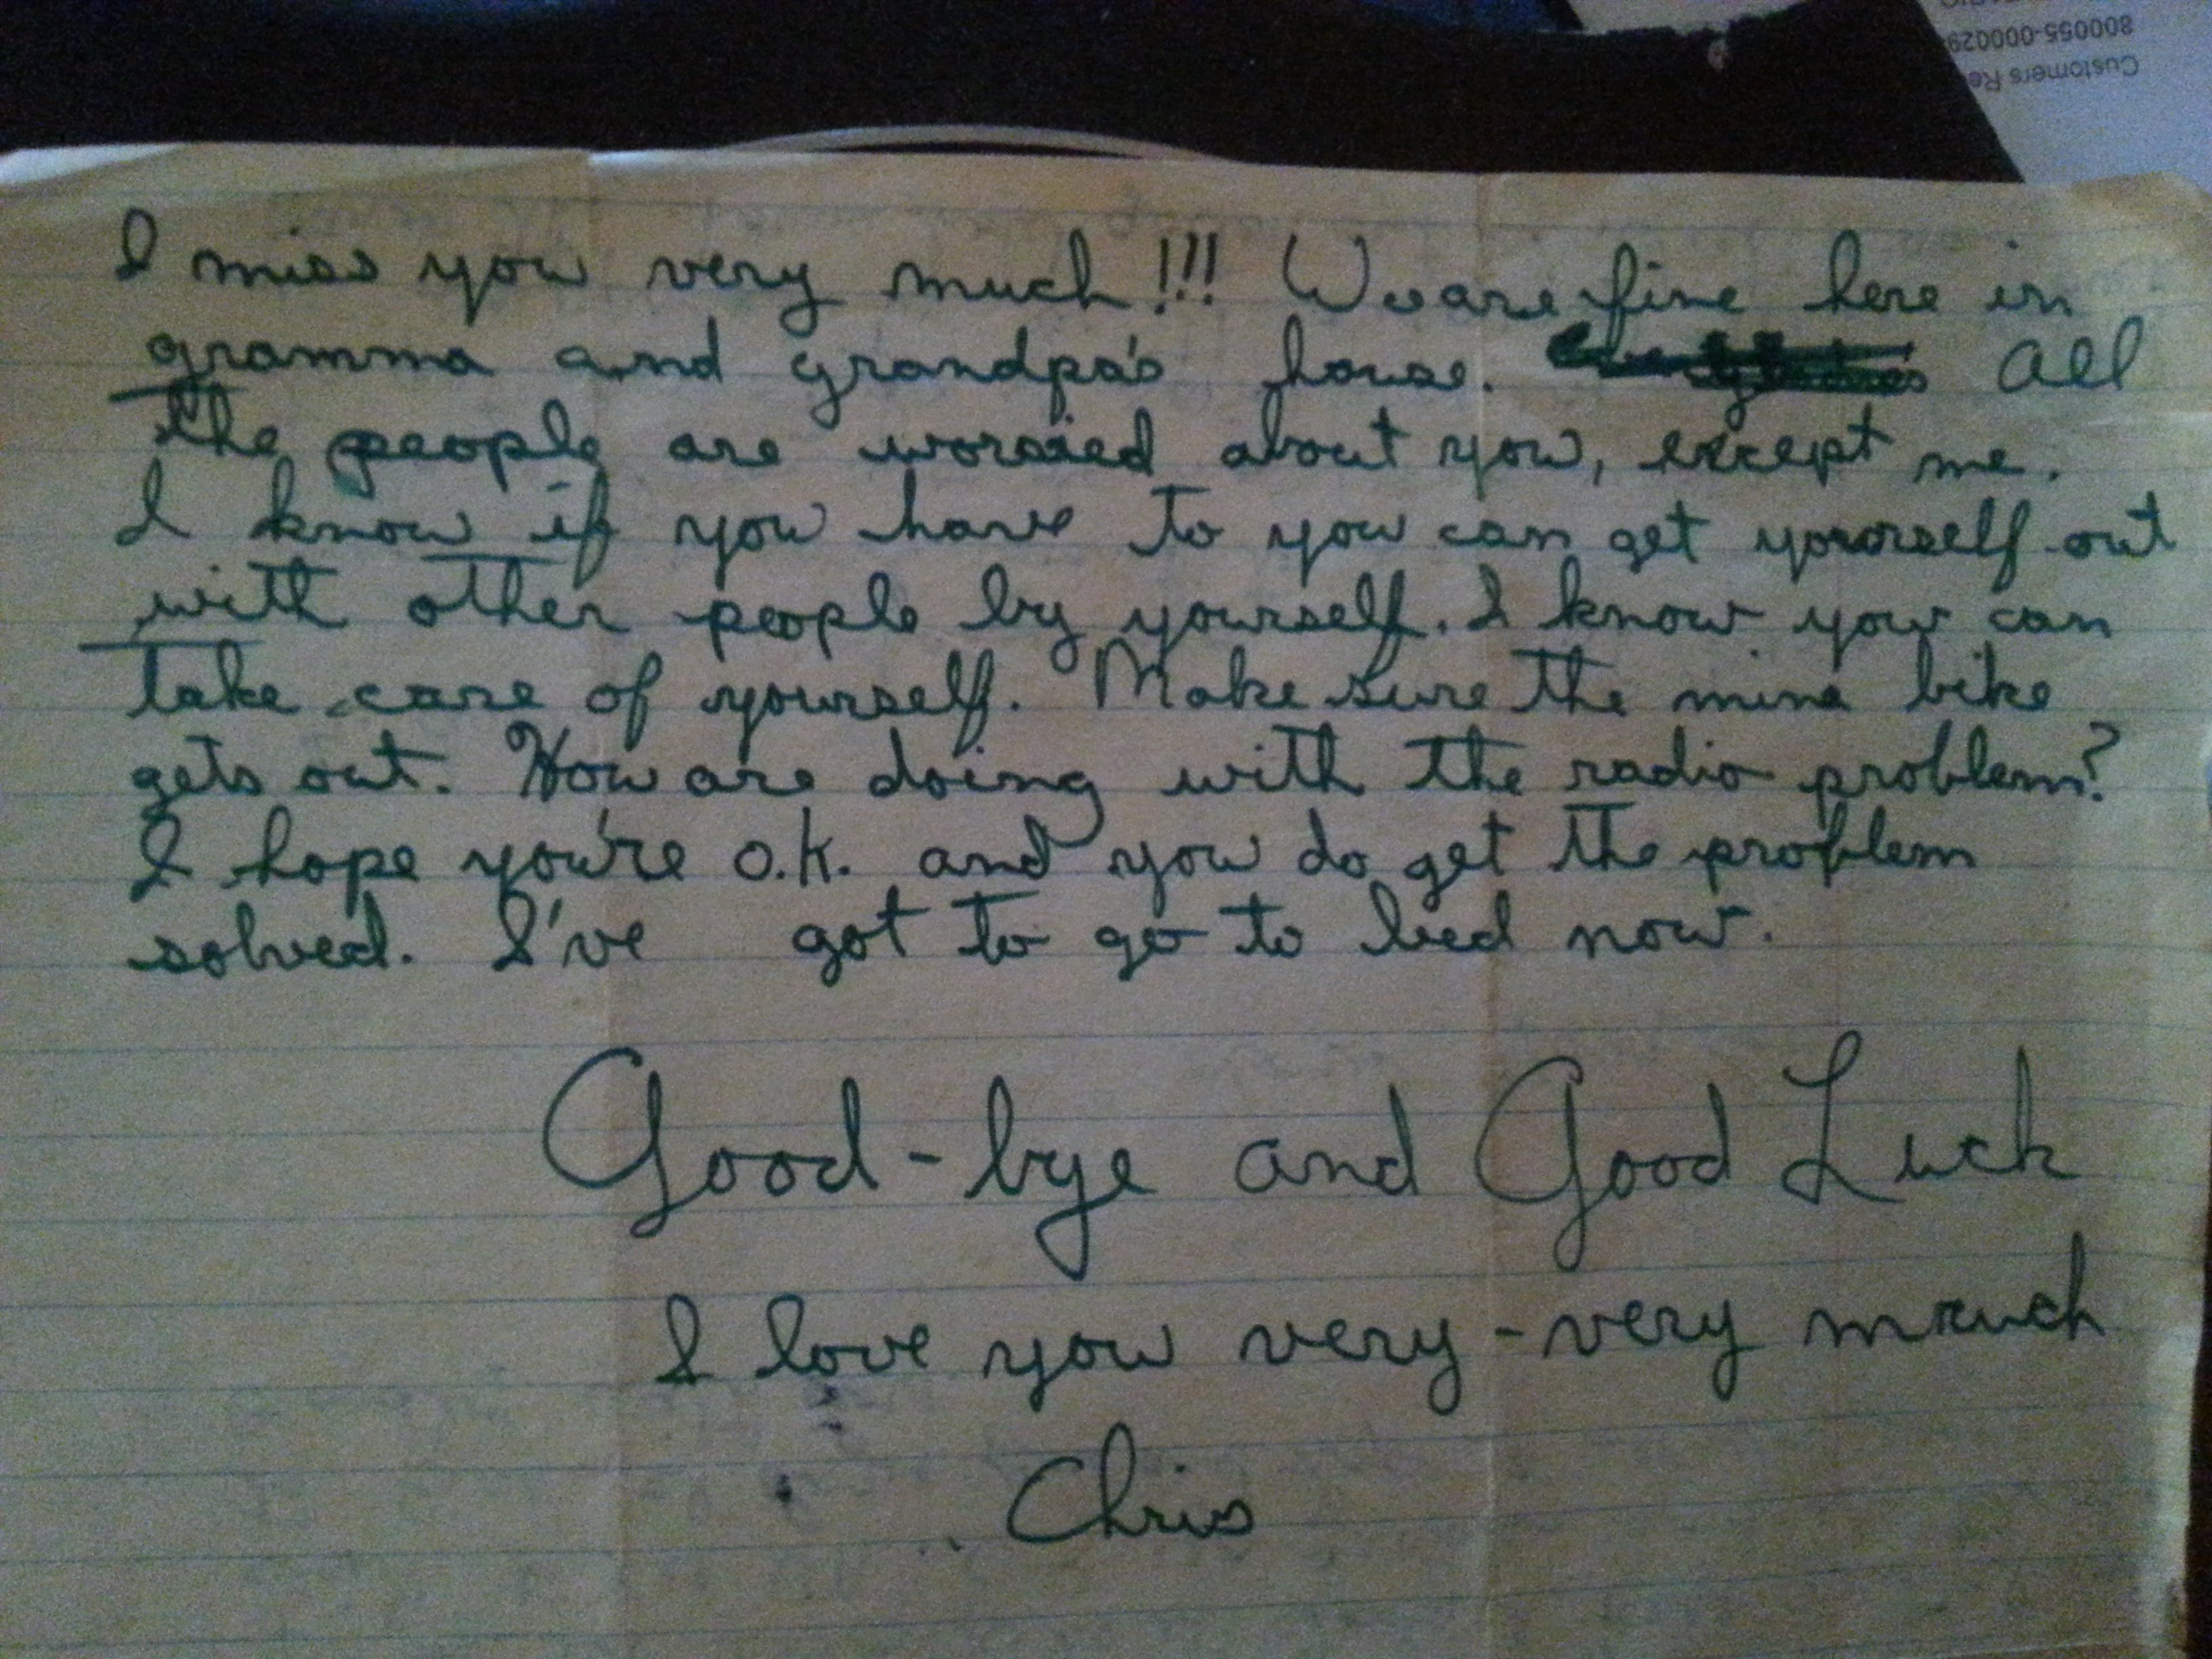 OARIO
800055-000029
Customers Re
I miss you very much!!! We are fine here in
gramma and grandpa's house. All
the people are worried about you, except me.
I know if you have to you can get yourself out
with other people by yourself. I know you can
take care of yourself. Make sure the mine bike
gets out. How are doing with the radio problem?
I hope you're o.k. and you do get the problem
solved. I've got to go to bed now.
Good-bye and Good Luck
I love you very-very much
Chris